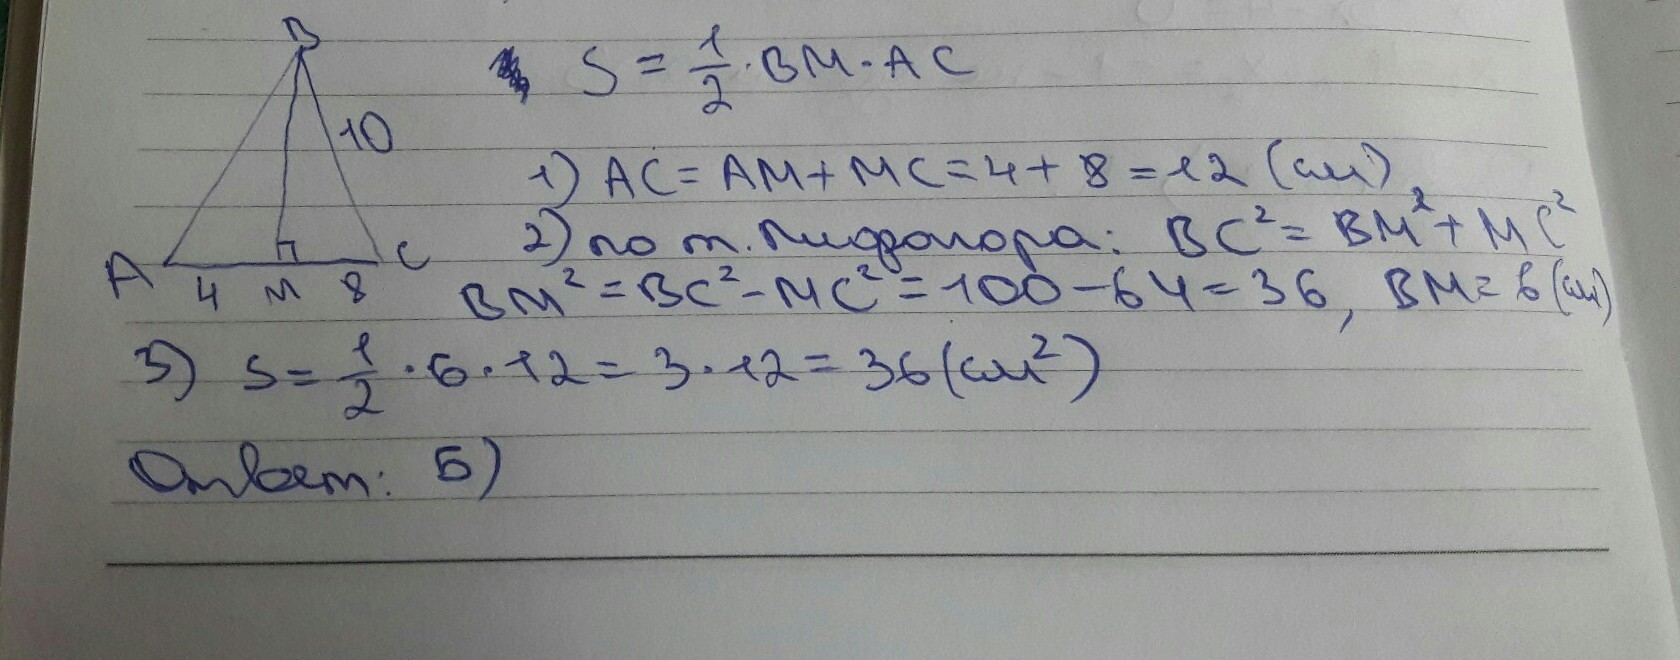 B
S = 1/2 · BM · AC
10
1) AC = AM + MC = 4 + 8 = 12 (см)
2) по т. Пифагора: BC² = BM² + MC²
A 4 M 8 C
BM² = BC² - MC² = 100 - 64 = 36, BM = 6 (см)
3) S = 1/2 · 6 · 12 = 3 · 12 = 36 (см²)
Ответ: Б)